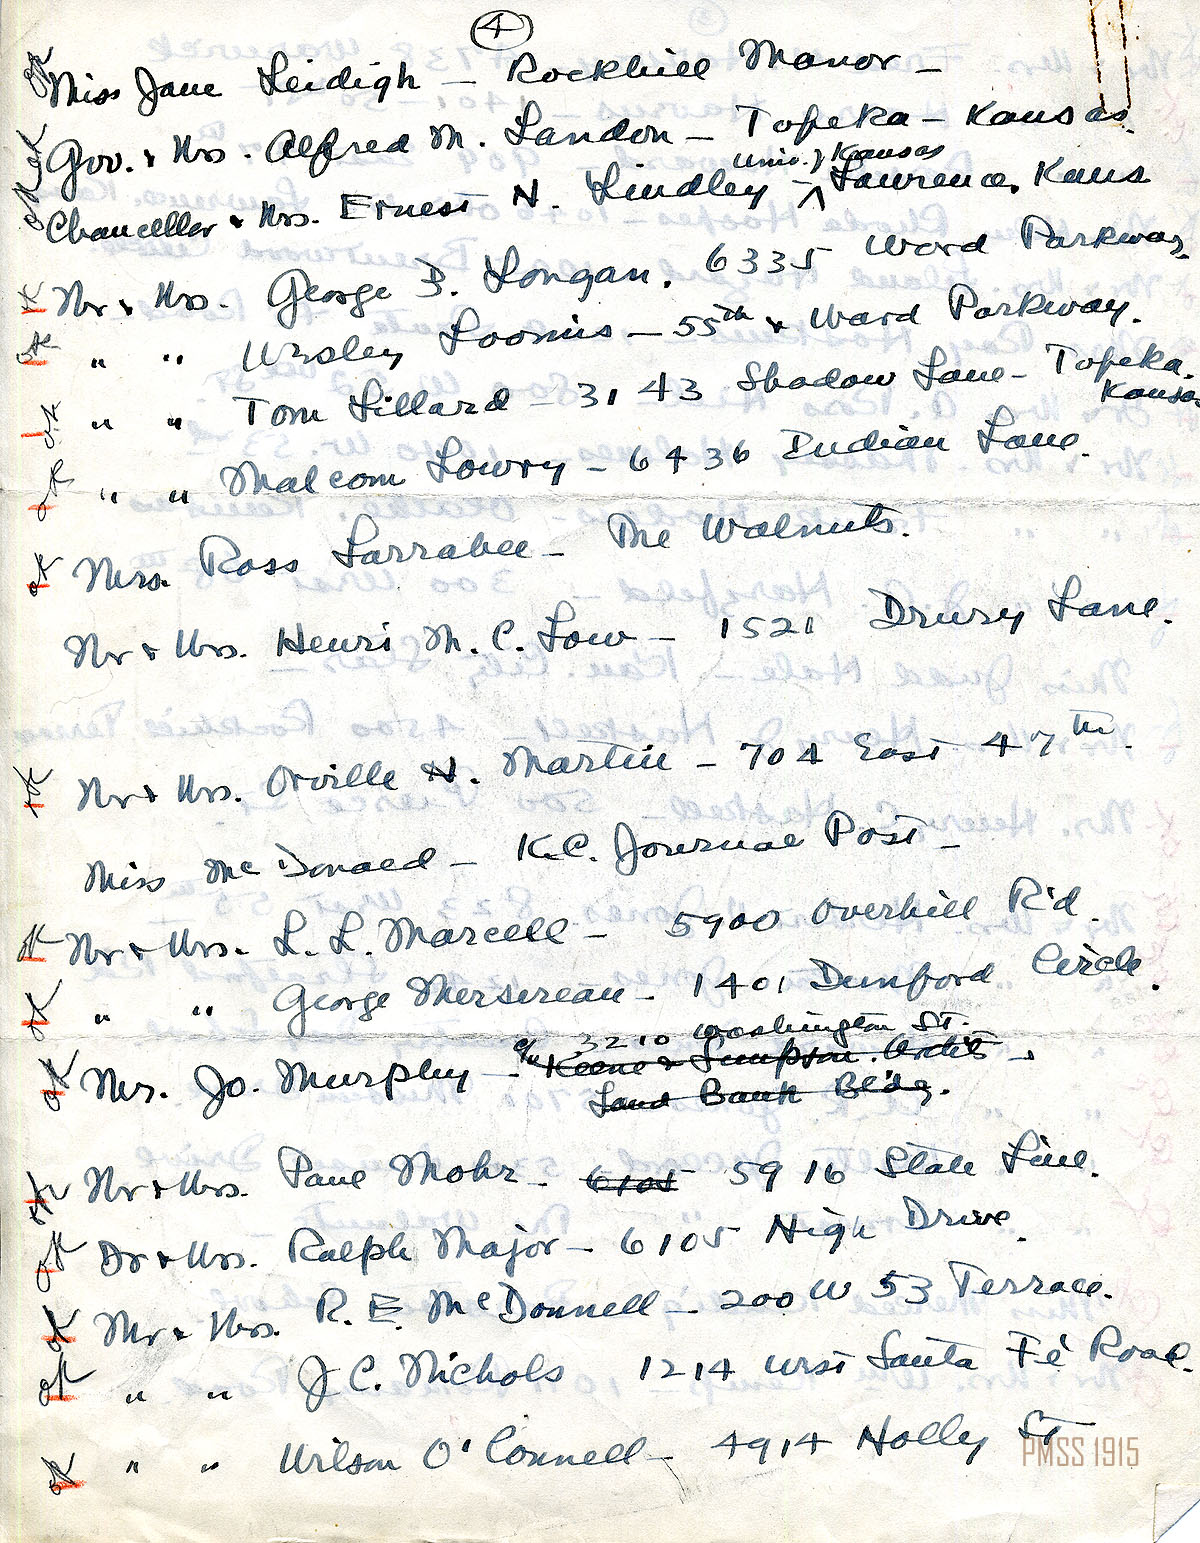 4
ok Miss Jane Leidigh — Rockhill Manor —
ok Gov. & Mrs. Alfred M. Landon — Topeka — Kansas.
Univ. of Kansas
ok Chancellor & Mrs. Ernest H. Lindley — ^ Lawrence, Kans
ok Mr & Mrs. George B. Longan. 6335 Ward Parkway.
ok " " Wesley Loomis — 55th & Ward Parkway.
ok " " Tom Lillard — 3143 Shadow Lane — Topeka.
Kansas
ok " " Malcom Lowry — 6436 Indian Lane.
ok Mrs. Ross Larrabee — The Walnuts.
Mr & Mrs. Henri M. C. Low — 1521 Drury Lane.
ok Mr & Mrs. Orville H. Martin — 704 East 47th.
Miss McDonald — K.C. Journal Post —
ok Mr & Mrs. L. L. Marcell — 5900 Overhill R'd.
ok " " George Mersereau — 1401 Dunford Circle.
3210 Washington St.
ok Mr. Jo. Murphy — c/o Keene & Simpson. Archts —
Land Bank Bldg.
ok Mr & Mrs. Paul Mohr — 6105 5916 State Line.
ok Dr & Mrs. Ralph Major — 6105 High Drive.
ok Mr & Mrs. R. E. McDonnell — 200 W 53 Terrace.
ok " " J C. Nichols 1214 West Santa Fé Road.
ok " " Wilson O'Connell — 4914 Holly St
PMSS 1915